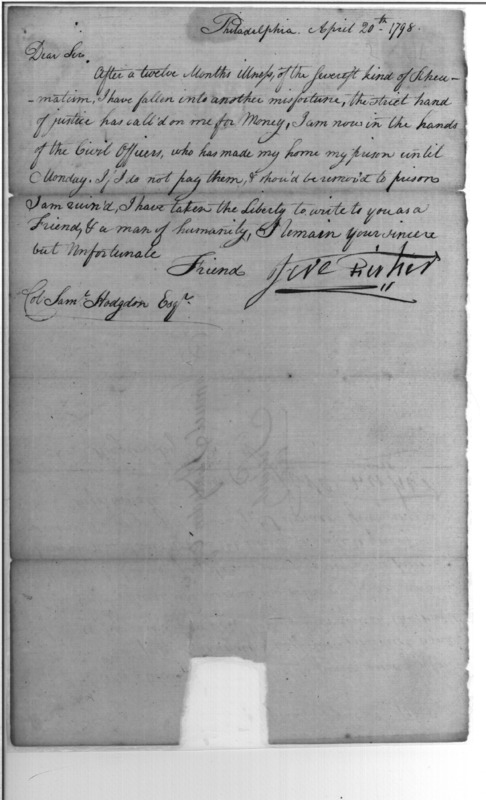 Philadelphia. April 20th 1798.
Dear Sir
After a twelve Months illness, of the severest kind of Rheu-
-matism, I have fallen into another misfortune, the strict hand
of justice has call'd on me for Money, I am now in the hands
of the Civil Officers, who has made my home my prison until
Monday. If I do not pay them, & shou'd be remov'd to prison
I am ruin'd, I have taken the Liberty to write to you as a
Friend, & a man of humanity, I remain your sincere
but Unfortunate
Friend Fisher
Col. Saml. Hodgdon Esqr.